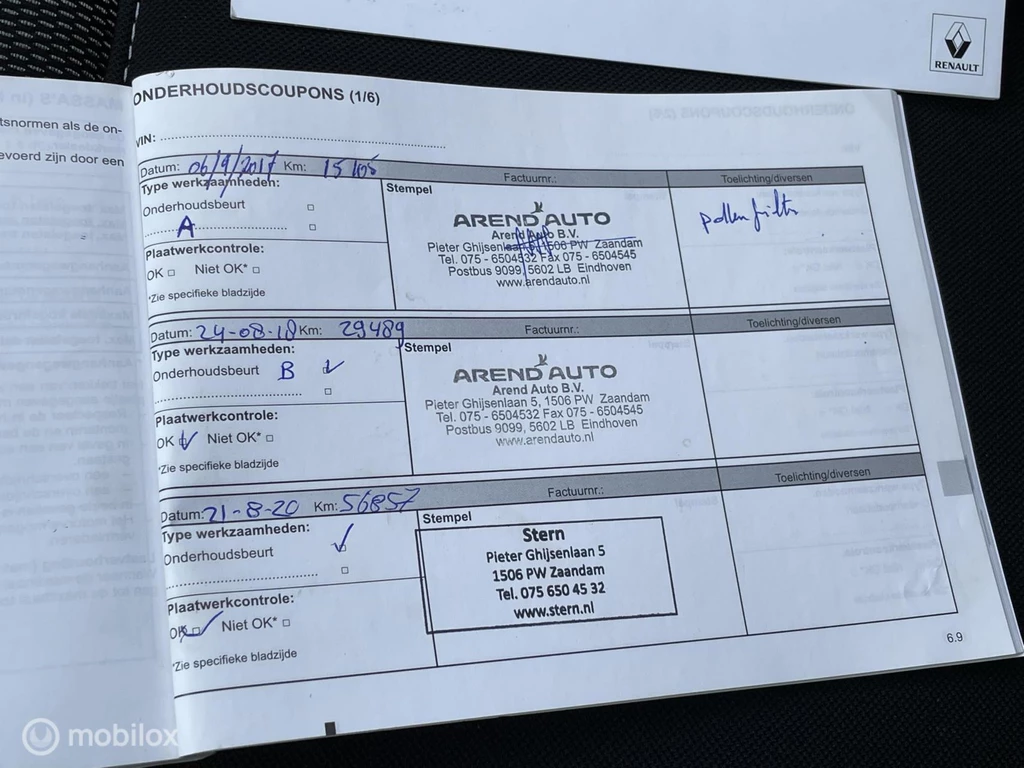 RENAULT
tsnormen als de on-
evoerd zijn door een
ONDERHOUDSCOUPONS (1/6)
VIN:
Datum: 06/9/2017 Km: 15 105 Factuurnr.: Toelichting/diversen
Type werkzaamheden:
Onderhoudsbeurt
A
Plaatwerkcontrole:
OK Niet OK*
*Zie specifieke bladzijde
Stempel
AREND AUTO
Arend Auto B.V.
Pieter Ghijsenlaan 5, 1506 PW Zaandam
Tel. 075 - 6504532 Fax 075 - 6504545
Postbus 9099, 5602 LB Eindhoven
www.arendauto.nl
pollenfilter
Datum: 24-08-18 Km: 29489 Factuurnr.: Toelichting/diversen
Type werkzaamheden:
Onderhoudsbeurt B
Plaatwerkcontrole:
OK Niet OK*
*Zie specifieke bladzijde
Stempel
AREND AUTO
Arend Auto B.V.
Pieter Ghijsenlaan 5, 1506 PW Zaandam
Tel. 075 - 6504532 Fax 075 - 6504545
Postbus 9099, 5602 LB Eindhoven
www.arendauto.nl
Datum: 21-8-20 Km: 56857 Factuurnr.: Toelichting/diversen
Type werkzaamheden:
Onderhoudsbeurt
Plaatwerkcontrole:
OK Niet OK*
*Zie specifieke bladzijde
Stempel
Stern
Pieter Ghijsenlaan 5
1506 PW Zaandam
Tel. 075 650 45 32
www.stern.nl
6.9
mobilox